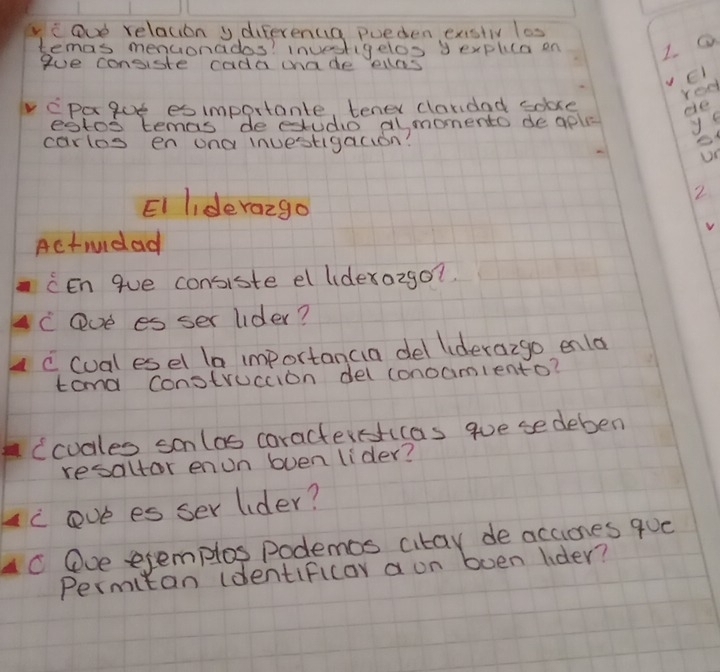 ¿Qué relación y diferencia pueden existir los
temas mencionados? investigelos y explica en
que consiste cada una de ellas
¿Por qué es importante tener claridad sobre
estos temas de estudio al momento de aplicarlos
en una investigación?
El liderazgo
Actividad
¿En que consiste el liderazgo?
¿Qué es ser lider?
¿cual es el la importancia del liderazgo en la
toma construcción del conocimiento?
¿cuales son las caracteristicas que se deben
resaltar en un buen lider?
¿Qué es ser lider?
¿Que ejemplos podemos citar de acciones que
Permitan identificar a un buen lider?
1.
El
de
y
2.